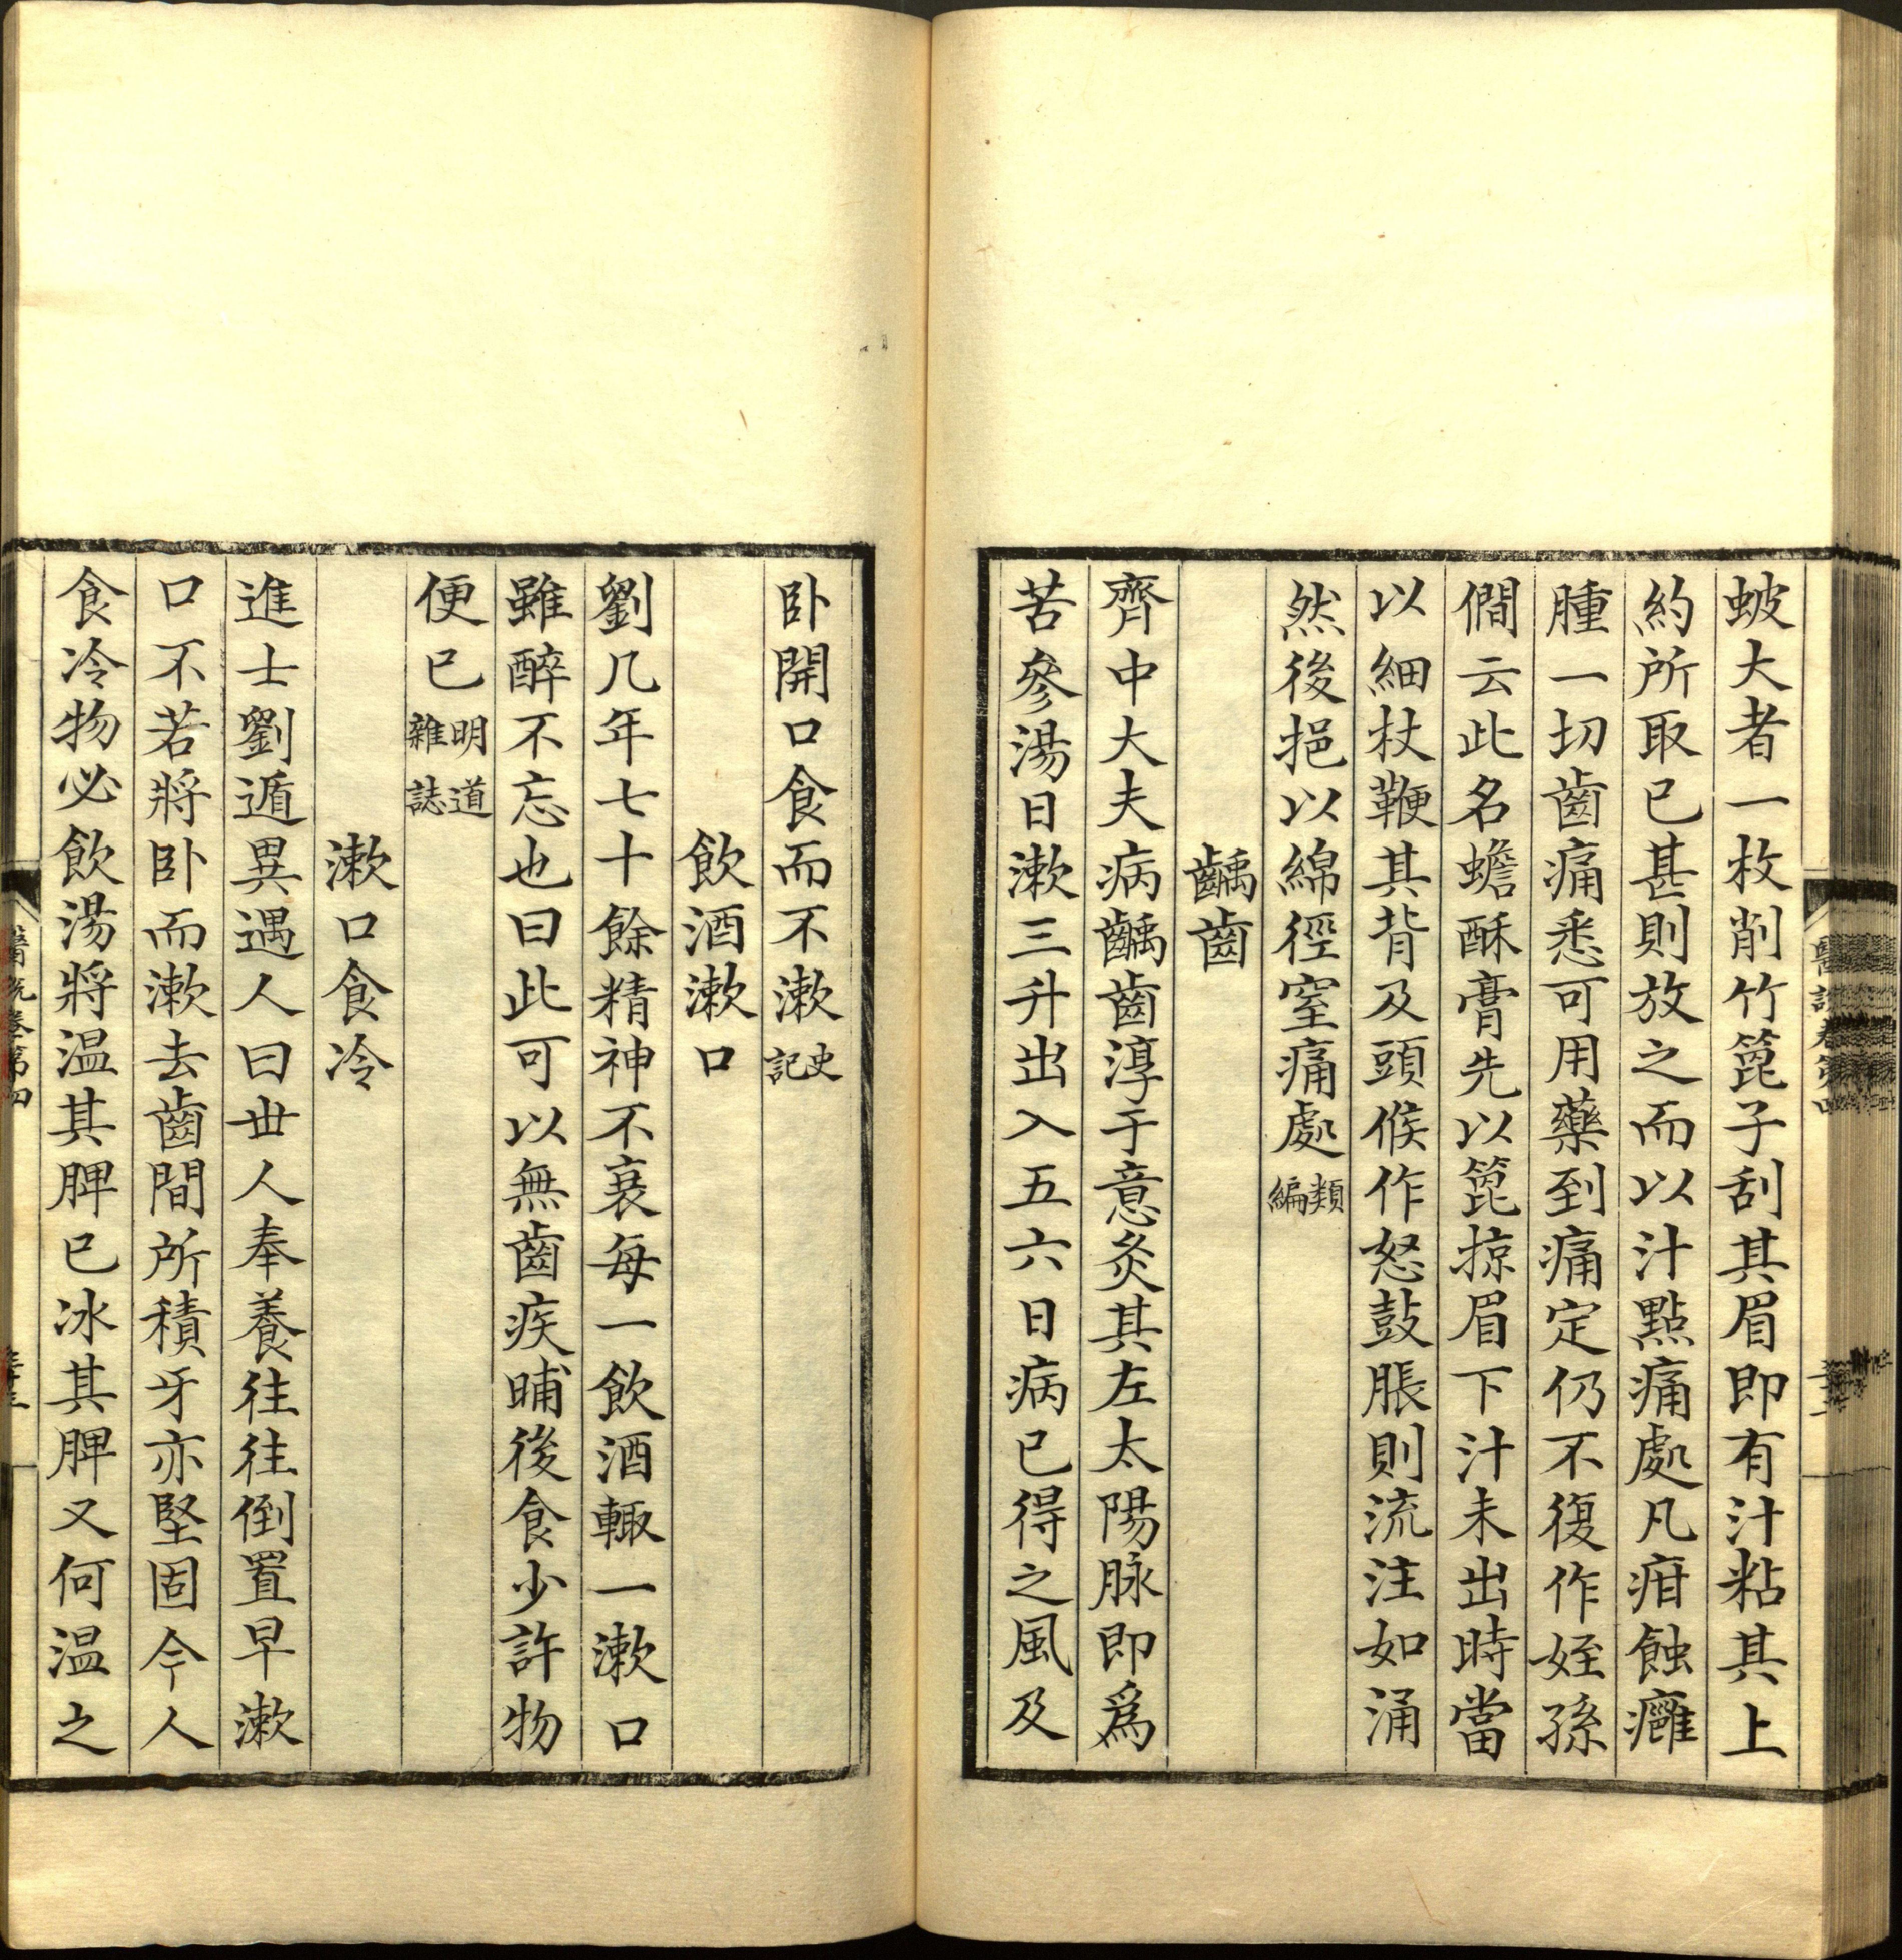 蚾大者一枚削竹篦子刮其眉即有汁粘其上
約所取已甚則放之而以汁點痛處凡疳蝕癰
腫一切齒痛悉可用藥到痛定仍不復作姪孫
僩云此名蟾酥膏先以篦掠眉下汁未出時當
以細杖鞭其背及頭候作怒鼓脹則流注如涌
然後挹以綿徑窒痛處類編
齲齒
齊中大夫病齲齒淳于意灸其左太陽脉即爲
苦參湯日漱三升出入五六日病已得之風及
卧開口食而不漱史記
飲酒漱口
劉几年七十餘精神不衰每一飲酒輒一漱口
雖醉不忘也曰此可以無齒疾晡後食少許物
便已明道雜誌
漱口食冷
進士劉遁異遇人曰丗人奉養往往倒置早漱
口不若將卧而漱去齒間所積牙亦堅固今人
食冷物必飲湯將温其脾已冰其脾又何温之
醫說卷第四